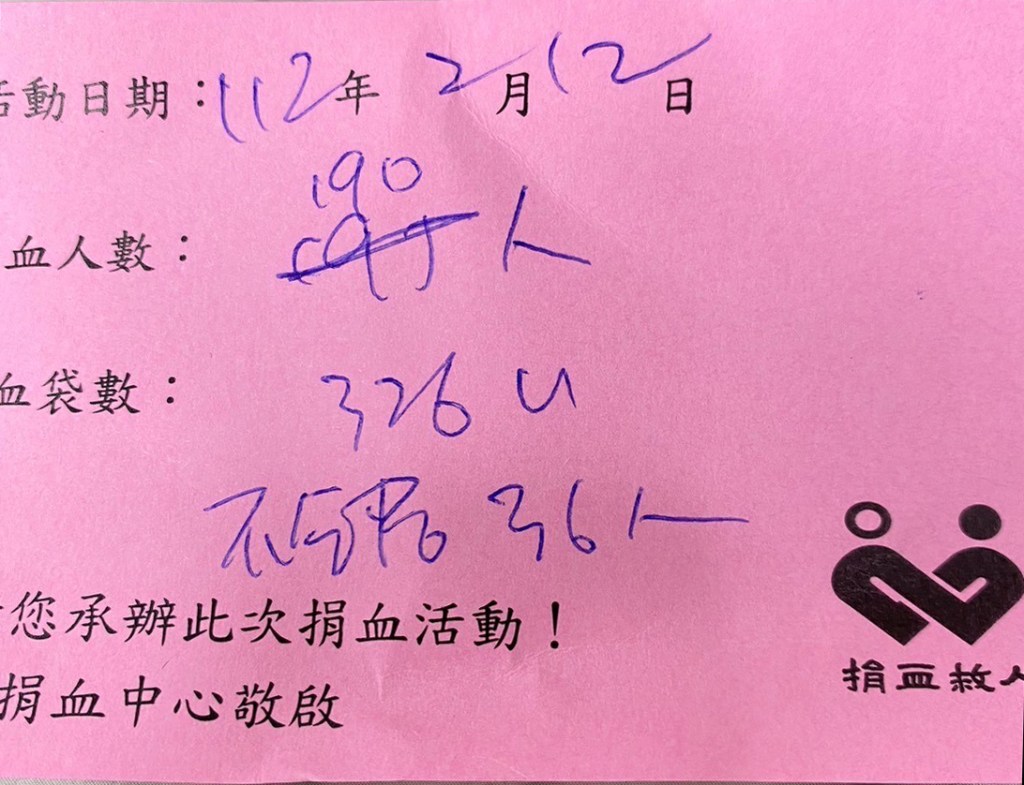 活動日期：112年 2月12日
190
血人數： 人
血袋數： 326 U
不合格 36人
您承辦此次捐血活動！
捐血中心敬啟
捐血救人